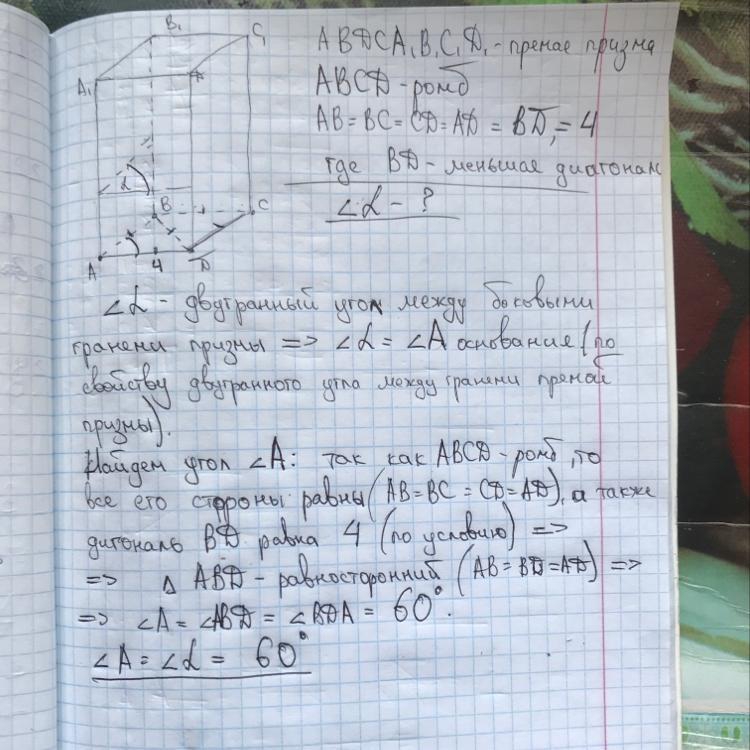 B₁
C₁
A₁
D₁
∠
B
C
A
4
D
ABDCA₁B₁C₁D₁ - премае призма
ABCD - ромб
AB = BC = CD = AD = BD, = 4
где BD - меньшая диагонам
∠L - ?
∠L - двугранный угол между боковыми
гранеми призны => ∠L = ∠A основание (по
свойству двугранного угла между гранеми премой
призмы).
Найдем угол ∠A: так как ABCD - ромб, то
все его стороны равны (AB = BC = CD = AD), а также
дигональ BD равна 4 (по условию) =>
=> Δ ABD - равносторонний (AB = BD = AD) =>
=> ∠A = ∠ABD = ∠BDA = 60°.
∠A = ∠L = 60°